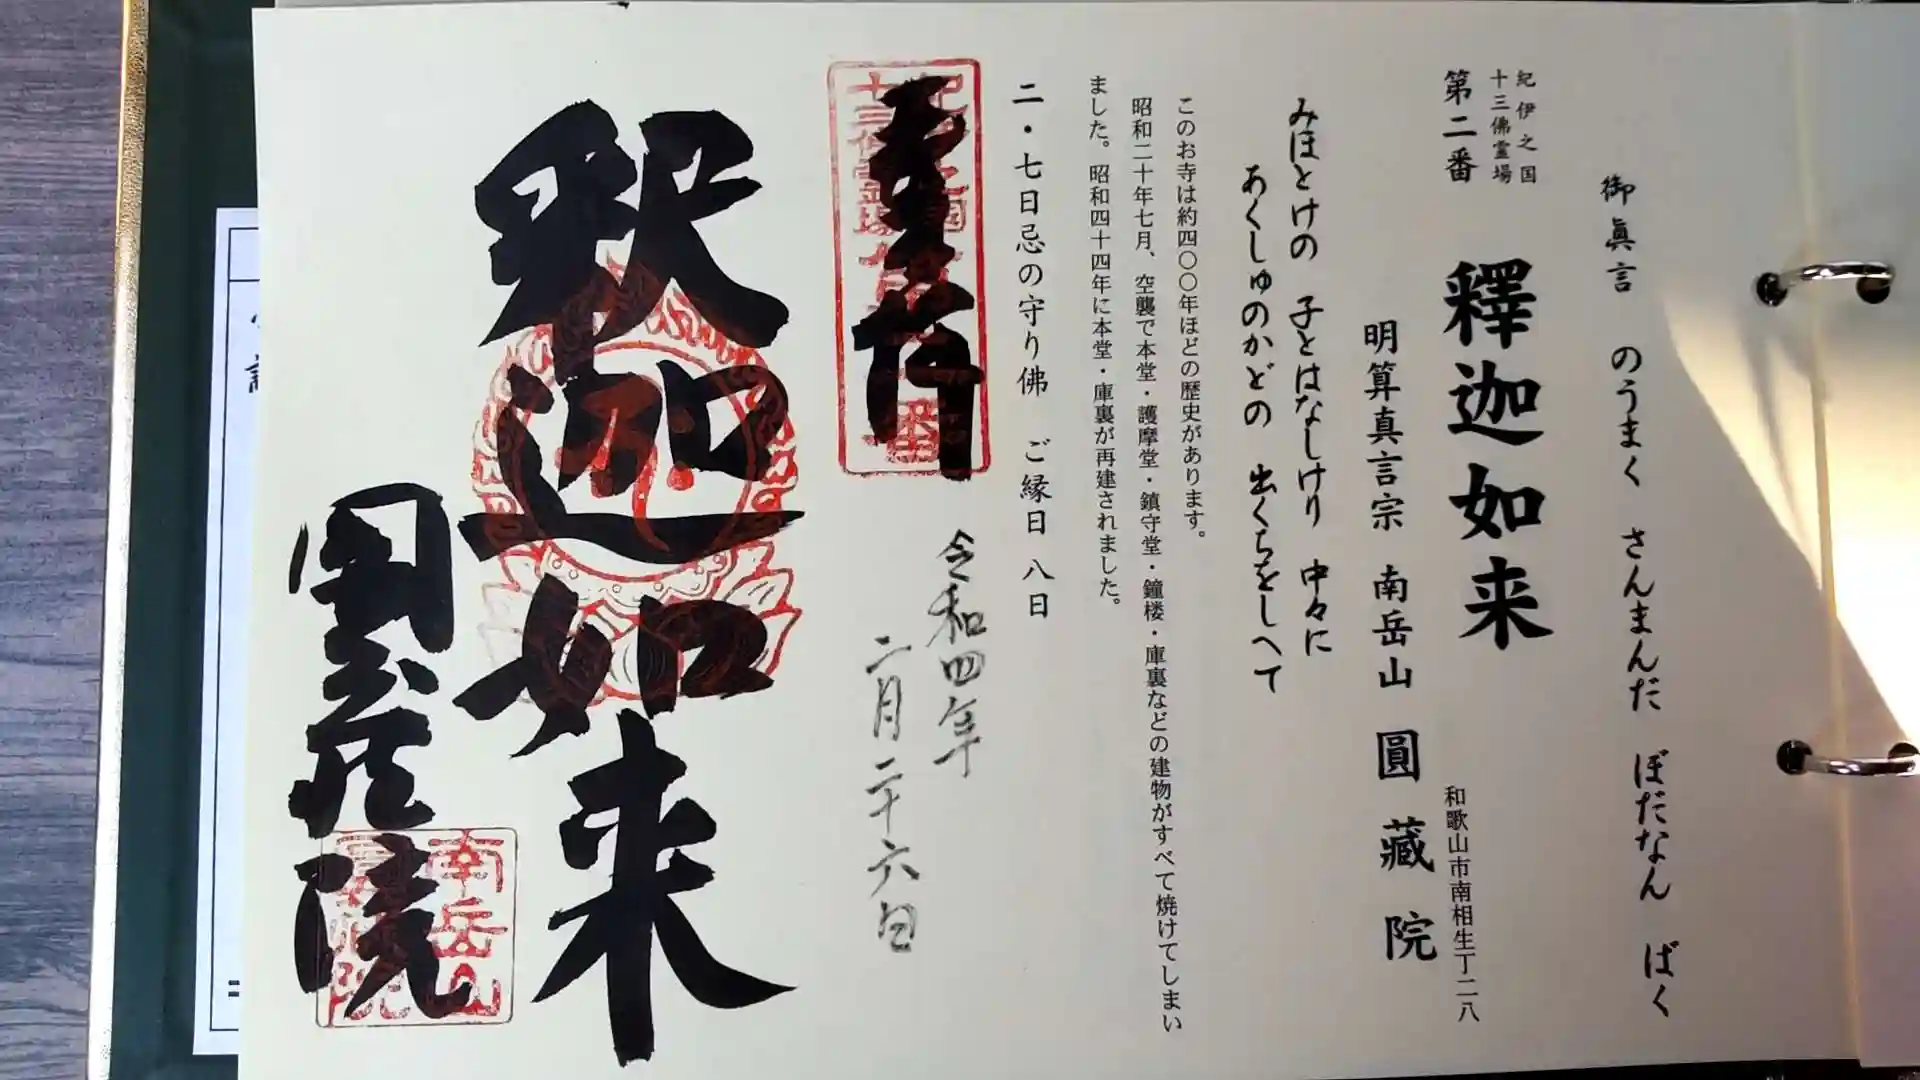 御眞言　のうまく　さんまんだ　ぼだなん　ばく
紀伊之国
十三佛霊場
第二番　釋迦如来
和歌山市南相生丁二八
明算真言宗　南岳山　圓藏院
みほとけの　子とはなしけり　中々に
あくしゅのかどの　出くちをしへて
このお寺は約四〇〇年ほどの歴史があります。
昭和二十年七月、空襲で本堂・護摩堂・鎮守堂・鐘楼・庫裏などの建物がすべて焼けてしまい
ました。昭和四十四年に本堂・庫裏が再建されました。
二・七日忌の守り佛　ご縁日　八日
令和四年
二月二十六日
奉拝
釈迦如来
圓蔵院
南岳山